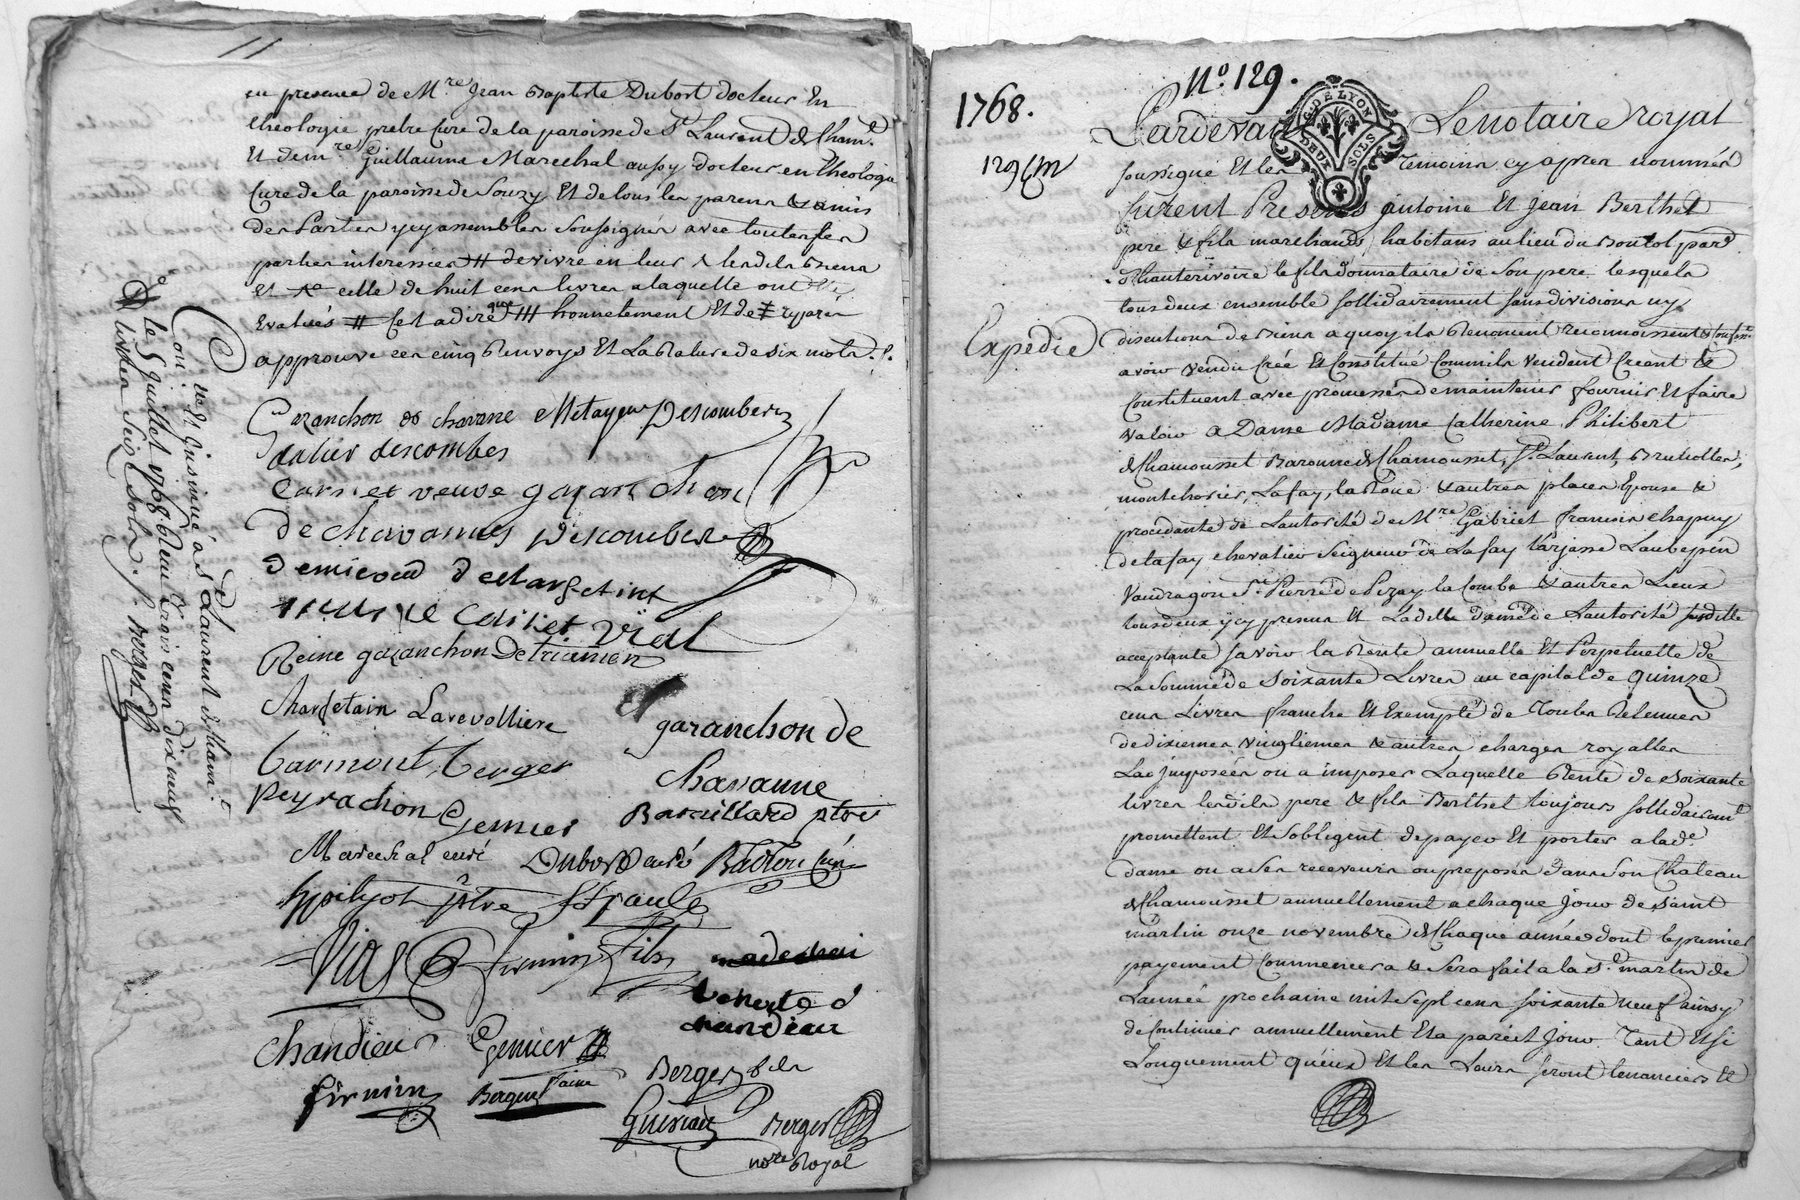 11
en presence de Mre Jean Baptiste Dubost docteur En
theologie prebre Cure de la paroisse de St Laurent de Cham.t
Et de mre Guillaume Marechal aussy docteur en theologie
Cure de la paroisse de Souzy Et de tous les parens & amis
des Parties ycy assembles Soussignés avec toutes les
parties interessées de vivre en leur
et celle de huit cens livres a laquelle ont été
Evalués Cet adire que honnetement Et de
approuvé ces cinq Renvoys Et La Rature de six mots
Gazanchon de chavane Metayer Descombes
dalier descombes
Carriet veuve gazanchon
De chavannes Descombes
Demicoud
Carriet Vial
Reine gazanchon
Chardetain Larevolliere
garanchon de
Chavanne
Barmont Berger
Peyrachon Gennier
Baraillard ptre
Marechal curé Dubost curé
ptre
Vial firmin fils
Chandieu Gennier
Berger fils
firmin Berger l'ainé
Berger
nore Royal
Con.lé Et Insinué a St Laurent de Cham.t
le 5 Juillet 1768 Reçu Trois cens dix neuf
livres Seize Sols. Berger
No. 129.
1768.
129
G. DE LYON
DEUX SOLS
Pardevant Le notaire royal
soussigné Et les temoins cy apres nommés
furent Presens antoine Et Jean Berthet
pere & fils marchands, habitans au lieu du Boutol pars.
d'hauterivoire le fils donnataire de Son pere lesquels
tous deux ensemble sollidairement sans division ny
Expedié
discution de biens a quoy ils Renoncent reconnoissent & confess.
avoir vendu créé Et Constitué Comm'ils vendent Creent &
Constituent avec promesses de maintenir fournir Et faire
valoir a Dame Madame Catherine Philibert
de Chamousset Baronne de Chamousset, St Laurent, Brulolles,
montchorier, Lafay, la Roue & autres places Epouse &
procedante de Lautorité de Mre Gabriel francois chapuy
de lafay chevalier Seigneur de Lafay Larjasse Laubepin
Vaudragon St Pierre de Pizay la Combe & autres Lieux
tous deux ycy presens Et Ladite dame de Lautorité susditte
acceptante savoir la Rente annuelle Et Perpetuelle de
La Somme de Soixante Livres au capital de quinze
cens Livres franche Et Exempte de Toutes Retenues
de dixiemes vingtiemes & autres charges royalles
Les imposées ou a imposer Laquelle Rente de Soixante
livres lesdits pere & fils Berthet toujours sollidairemt
promettent Et sobligent de payer Et porter a lade.
dame ou a ses receveurs ou preposés dans son Chateau
de Chamousset annuellement a chaque Jour de Saint
martin onze novembre de Chaque année dont le premier
payement Commencera & Sera fait a la St martin de
Lannée prochaine mil sept cens soixante neuf ainsy
de Continuer annuellement Et a pareil Jour Tant Et si
Longuement qu'eux Et les Leurs seront tenanciers &